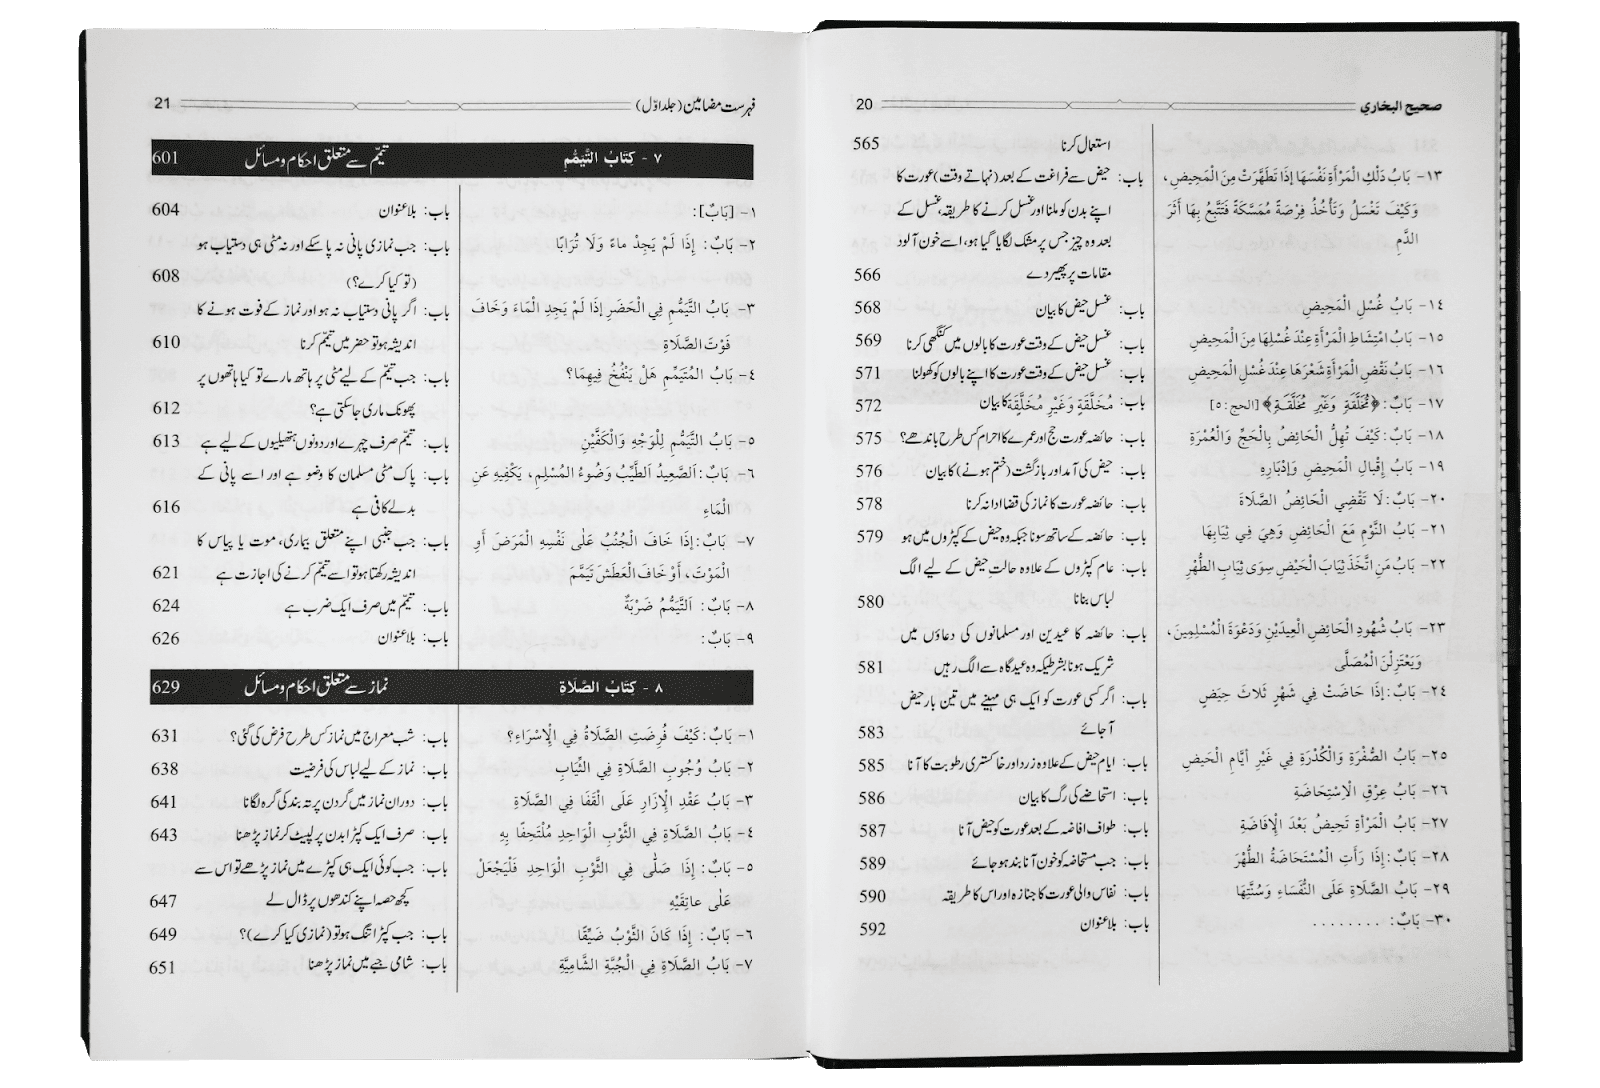 صحيح البخاري 20
استعمال کرنا 565
١٣- بَابُ دَلْكِ الْمَرْأَةِ نَفْسَهَا إِذَا تَطَهَّرَتْ مِنَ الْمَحِيضِ، باب: حیض سے فراغت کے بعد (نہاتے وقت) عورت کا
وَكَيْفَ تَغْسَلُ وَتَأْخُذُ فِرْصَةً مُمَسَّكَةً فَتَتَّبِعُ بِهَا أَثَرَ اپنے بدن کو ملنا اور غسل کرنے کا طریقہ، غسل کے
الدَّمِ بعد وہ چیز جس پر مشک لگایا گیا ہو، اسے خون آلود
مقامات پر پھیر دے 566
١٤- بَابُ غُسْلِ الْمَحِيضِ باب: غسل حیض کا بیان 568
١٥- بَابُ امْتِشَاطِ الْمَرْأَةِ عِنْدَ غُسْلِهَا مِنَ الْمَحِيضِ باب: غسل حیض کے وقت عورت کا بالوں میں کنگھی کرنا 569
١٦- بَابُ نَقْضِ الْمَرْأَةِ شَعْرَهَا عِنْدَ غُسْلِ الْمَحِيضِ باب: غسل حیض کے وقت عورت کا اپنے بالوں کو کھولنا 571
١٧- بَابٌ: ﴿مُّخَلَّقَةٍ وَغَيْرِ مُخَلَّقَةٍ﴾ [الحج: ٥] باب: مُخَلَّقَةٍ وَغَيْرِ مُخَلَّقَةٍ کا بیان 572
١٨- بَابٌ: كَيْفَ تُهِلُّ الْحَائِضُ بِالْحَجِّ وَالْعُمْرَةِ باب: حائضہ عورت حج اور عمرے کا احرام کس طرح باندھے؟ 575
١٩- بَابُ إِقْبَالِ الْمَحِيضِ وَإِدْبَارِهِ باب: حیض کی آمد اور بازگشت (ختم ہونے) کا بیان 576
٢٠- بَابٌ: لَا تَقْضِي الْحَائِضُ الصَّلَاةَ باب: حائضہ عورت کا نماز کی قضا ادا نہ کرنا 578
٢١- بَابُ النَّوْمِ مَعَ الْحَائِضِ وَهِيَ فِي ثِيَابِهَا باب: حائضہ کے ساتھ سونا جبکہ وہ حیض کے کپڑوں میں ہو 579
٢٢- بَابُ مَنِ اتَّخَذَ ثِيَابَ الْحَيْضِ سِوَى ثِيَابِ الطُّهْرِ باب: عام کپڑوں کے علاوہ حالتِ حیض کے لیے الگ
لباس بنانا 580
٢٣- بَابُ شُهُودِ الْحَائِضِ الْعِيدَيْنِ وَدَعْوَةَ الْمُسْلِمِينَ، باب: حائضہ کا عیدین اور مسلمانوں کی دعاؤں میں
وَيَعْتَزِلْنَ الْمُصَلَّى شریک ہونا بشرطیکہ وہ عیدگاہ سے الگ رہیں 581
٢٤- بَابٌ: إِذَا حَاضَتْ فِي شَهْرٍ ثَلَاثَ حِيَضٍ باب: اگر کسی عورت کو ایک ہی مہینے میں تین بار حیض
آ جائے 583
٢٥- بَابُ الصُّفْرَةِ وَالْكُدْرَةِ فِي غَيْرِ أَيَّامِ الْحَيْضِ باب: ایام حیض کے علاوہ زرد اور خاکستری رطوبت کا آنا 585
٢٦- بَابُ عِرْقِ الْاِسْتِحَاضَةِ باب: استحاضے کی رگ کا بیان 586
٢٧- بَابُ الْمَرْأَةِ تَحِيضُ بَعْدَ الْإِفَاضَةِ باب: طواف افاضہ کے بعد عورت کو حیض آنا 587
٢٨- بَابٌ: إِذَا رَأَتِ الْمُسْتَحَاضَةُ الطُّهْرَ باب: جب مستحاضہ کو خون آنا بند ہو جائے 589
٢٩- بَابُ الصَّلَاةِ عَلَى النُّفَسَاءِ وَسُنَّتِهَا باب: نفاس والی عورت کا جنازہ اور اس کا طریقہ 590
٣٠- بَابٌ: ........ باب: بلاعنوان 592
فہرست مضامین (جلد اوّل) 21
٧ - كِتَابُ التَّيَمُّمِ تیمّم سے متعلق احکام و مسائل 601
١- [بَابٌ]: باب: بلاعنوان 604
٢- بَابٌ: إِذَا لَمْ يَجِدْ مَاءً وَلَا تُرَابًا باب: جب نمازی پانی نہ پا سکے اور نہ مٹی ہی دستیاب ہو
(تو کیا کرے؟) 608
٣- بَابُ التَّيَمُّمِ فِي الْحَضَرِ إِذَا لَمْ يَجِدِ الْمَاءَ وَخَافَ باب: اگر پانی دستیاب نہ ہو اور نماز کے فوت ہونے کا
فَوْتَ الصَّلَاةِ اندیشہ ہو تو حضر میں تیمّم کرنا 610
٤- بَابُ الْمُتَيَمِّمِ هَلْ يَنْفُخُ فِيهِمَا؟ باب: جب تیمّم کے لیے مٹی پر ہاتھ مارے تو کیا ہاتھوں پر
پھونک ماری جا سکتی ہے؟ 612
٥- بَابُ التَّيَمُّمِ لِلْوَجْهِ وَالْكَفَّيْنِ باب: تیمّم صرف چہرے اور دونوں ہتھیلیوں کے لیے ہے 613
٦- بَابٌ: اَلصَّعِيدُ الطَّيِّبُ وَضُوءُ الْمُسْلِمِ، يَكْفِيهِ عَنِ باب: پاک مٹی مسلمان کا وضو ہے اور اسے پانی کے
الْمَاءِ بدلے کافی ہے 616
٧- بَابٌ: إِذَا خَافَ الْجُنُبُ عَلٰى نَفْسِهِ الْمَرَضَ أَوِ باب: جب جنبی اپنے متعلق بیماری، موت یا پیاس کا
الْمَوْتَ، أَوْ خَافَ الْعَطَشَ تَيَمَّمَ اندیشہ رکھتا ہو تو اسے تیمّم کرنے کی اجازت ہے 621
٨- بَابٌ: اَلتَّيَمُّمُ ضَرْبَةٌ باب: تیمّم میں صرف ایک ضرب ہے 624
٩- بَابٌ: باب: بلاعنوان 626
٨ - كِتَابُ الصَّلَاةِ نماز سے متعلق احکام و مسائل 629
١- بَابٌ: كَيْفَ فُرِضَتِ الصَّلَاةُ فِي الْإِسْرَاءِ؟ باب: شب معراج میں نماز کس طرح فرض کی گئی؟ 631
٢- بَابُ وُجُوبِ الصَّلَاةِ فِي الثِّيَابِ باب: نماز کے لیے لباس کی فرضیت 638
٣- بَابُ عَقْدِ الْإِزَارِ عَلَى الْقَفَا فِي الصَّلَاةِ باب: دوران نماز میں گردن پر تہ بند کی گرہ لگانا 641
٤- بَابُ الصَّلَاةِ فِي الثَّوْبِ الْوَاحِدِ مُلْتَحِفًا بِهِ باب: صرف ایک کپڑا بدن پر لپیٹ کر نماز پڑھنا 643
٥- بَابٌ: إِذَا صَلّٰى فِي الثَّوْبِ الْوَاحِدِ فَلْيَجْعَلْ باب: جب کوئی ایک ہی کپڑے میں نماز پڑھے تو اس سے
عَلٰى عَاتِقَيْهِ کچھ حصہ اپنے کندھوں پر ڈال لے 647
٦- بَابٌ: إِذَا كَانَ الثَّوْبُ ضَيِّقًا باب: جب کپڑا تنگ ہو تو (نمازی کیا کرے)؟ 649
٧- بَابُ الصَّلَاةِ فِي الْجُبَّةِ الشَّامِيَّةِ باب: شامی جبے میں نماز پڑھنا 651